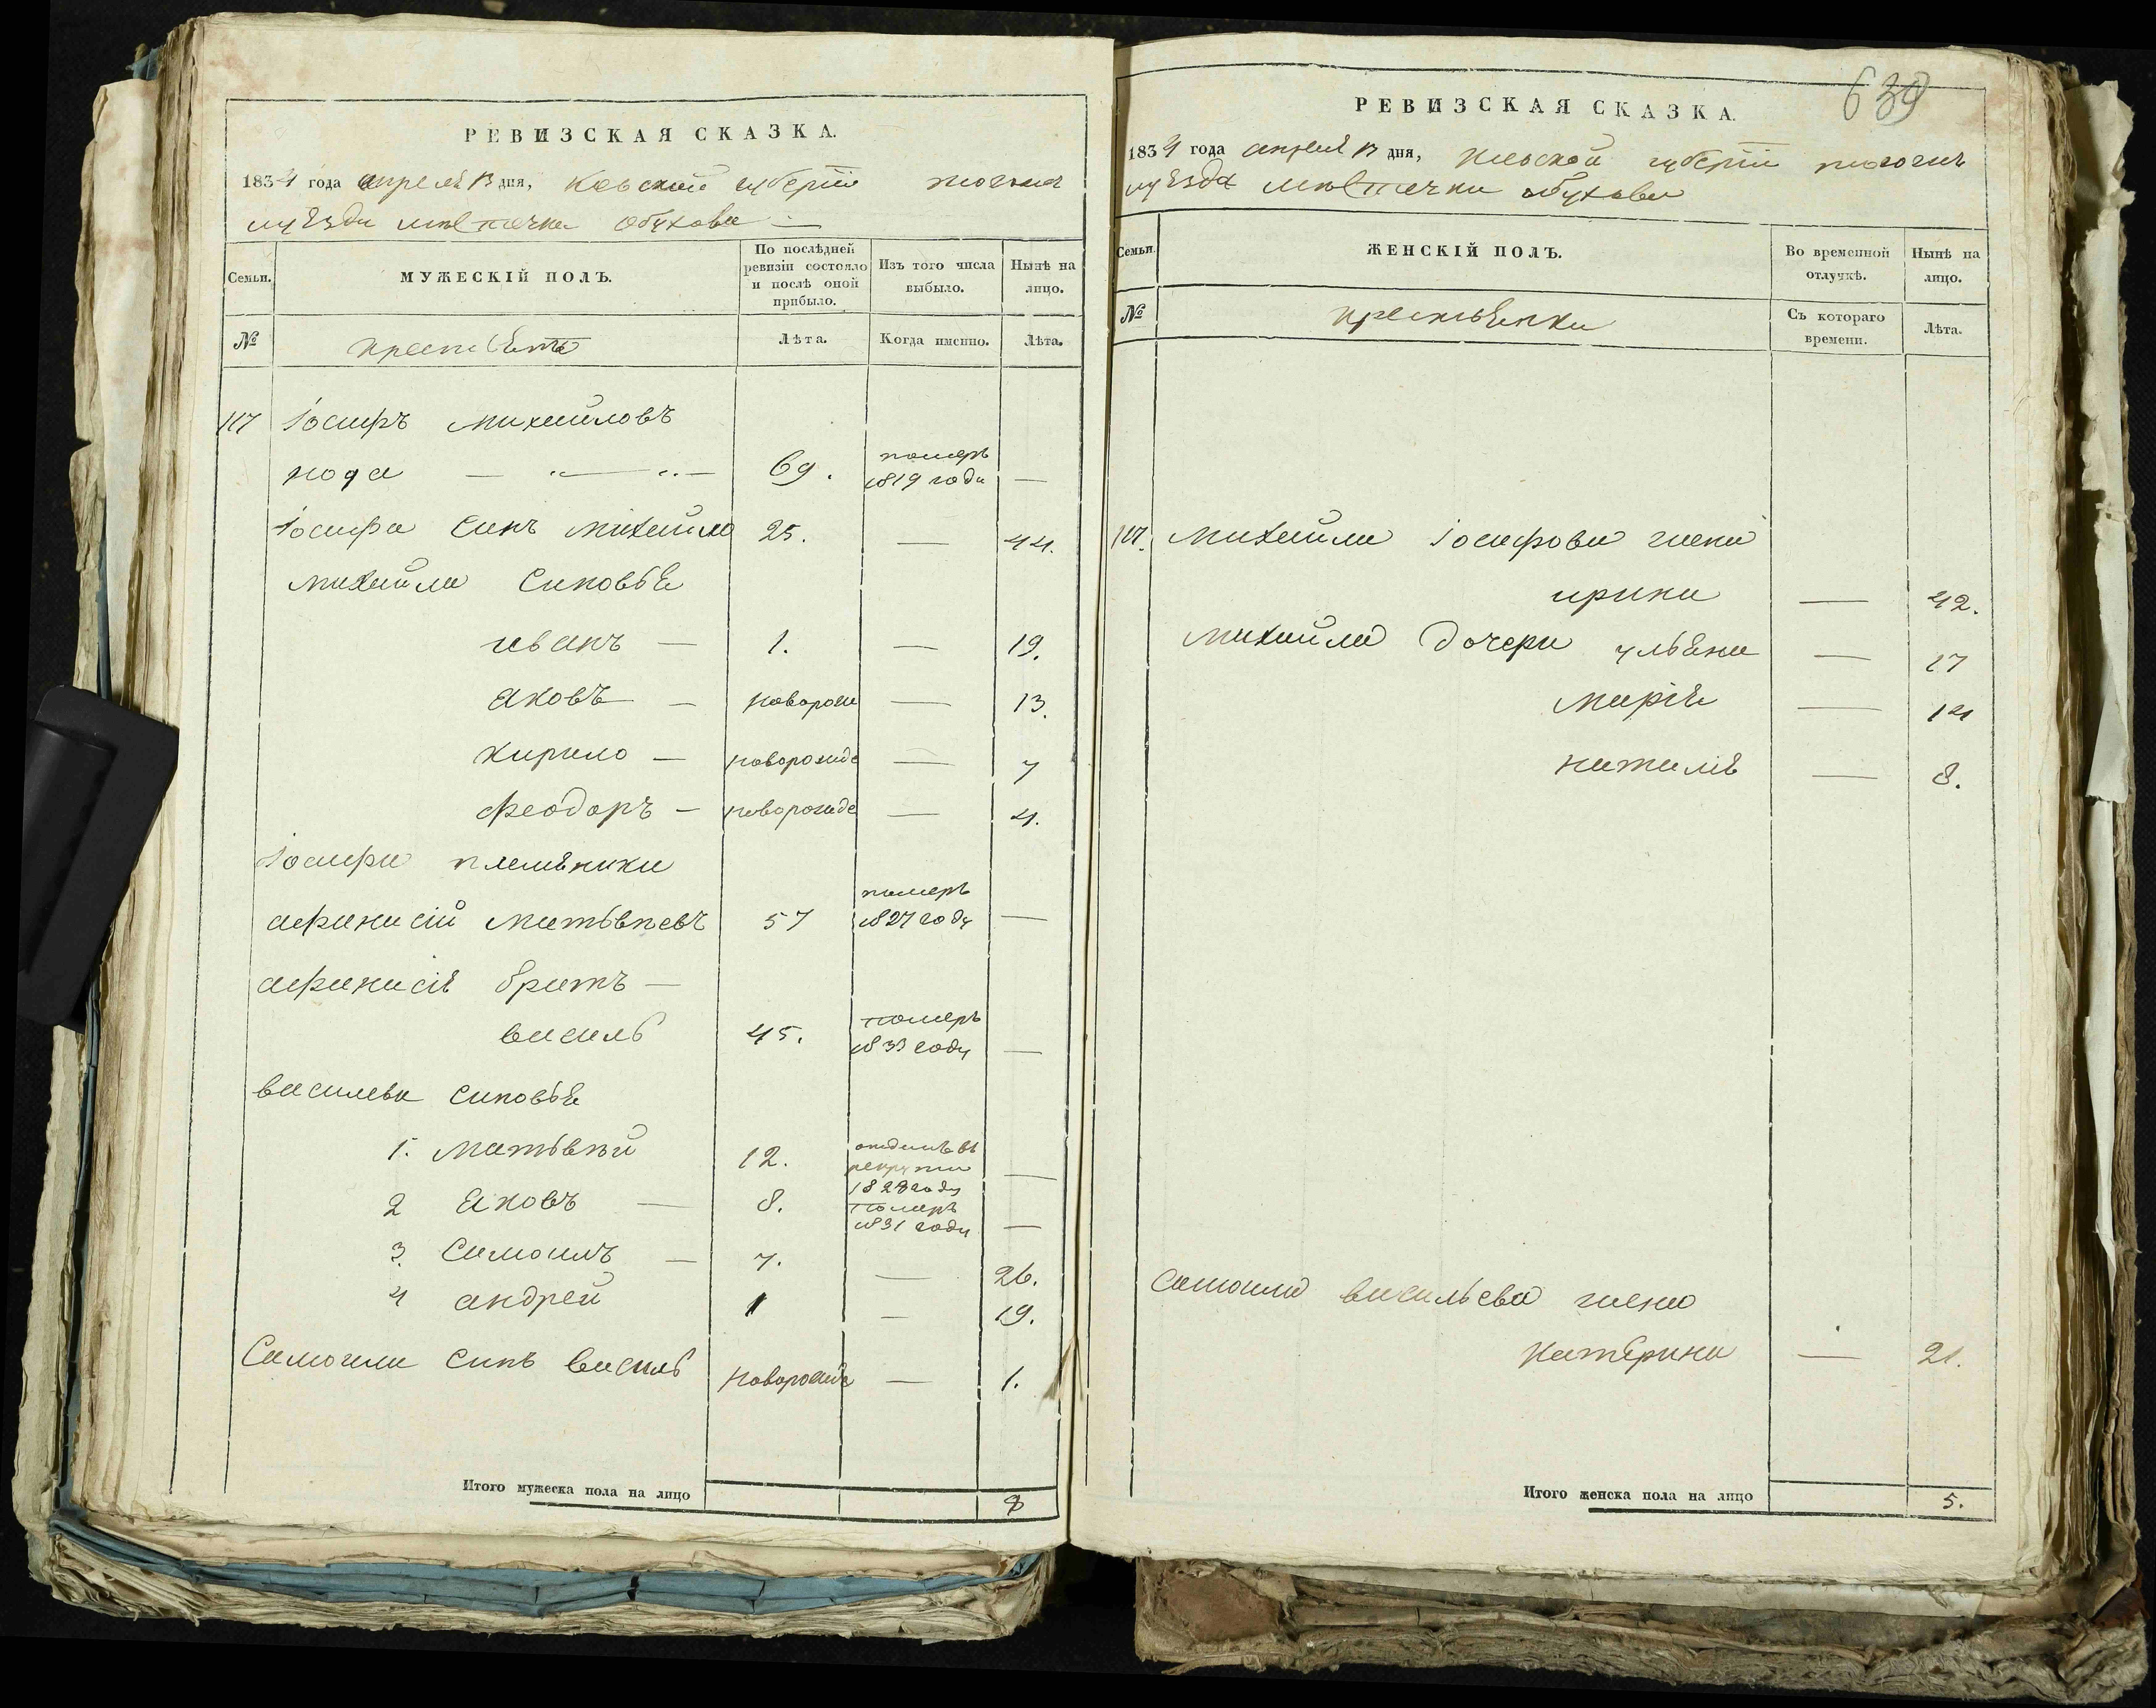 РЕВИЗСКАЯ СКАЗКА.
1834 года апреля 13 дня, Киевской губернии
уезда местечка Обухова
Семьи. МУЖЕСКІЙ ПОЛЪ. По послѣдней ревизіи состояло и послѣ оной прибыло. Изъ того числа выбыло. Нынѣ на лицо.
№ Лѣта. Когда именно. Лѣта.
117 Іосифъ Михайловъ
69. померъ 1819 года —
Іосифа синъ Михайло 25. — 44.
Михайла синовья
иванъ — 1. — 19.
яковъ — новорож — 13.
кирило — новорожде — 7
феодоръ — новорожде — 4.
Іосифа племѣники
афанасій матвѣевъ 57 померъ 1827 году —
афанасія братъ —
василь 45. померъ 1833 году —
василья синовья
1. матвѣй 12. отданъ въ рекруты 1828 году —
2 яковъ — 8. померъ 1831 году —
3. Самоилъ — 7. — 26.
4 андрей 1 — 19.
Самоила синъ василь новорожде — 1.
Итого мужеска пола на лицо 8
639
РЕВИЗСКАЯ СКАЗКА.
1834 года апреля 13 дня, Киевской губерніи
уезда местечка обухова
Семьи. ЖЕНСКІЙ ПОЛЪ. Во временной отлучкѣ. Нынѣ на лицо.
№ Съ котораго времени. Лѣта.
117. Михайла Іосифова жена
ирина — 42.
Михайла дочери ульяна — 17
марія — 14
наталія — 8.
Самоила васильева жена
катерина — 21.
Итого женска пола на лицо 5.